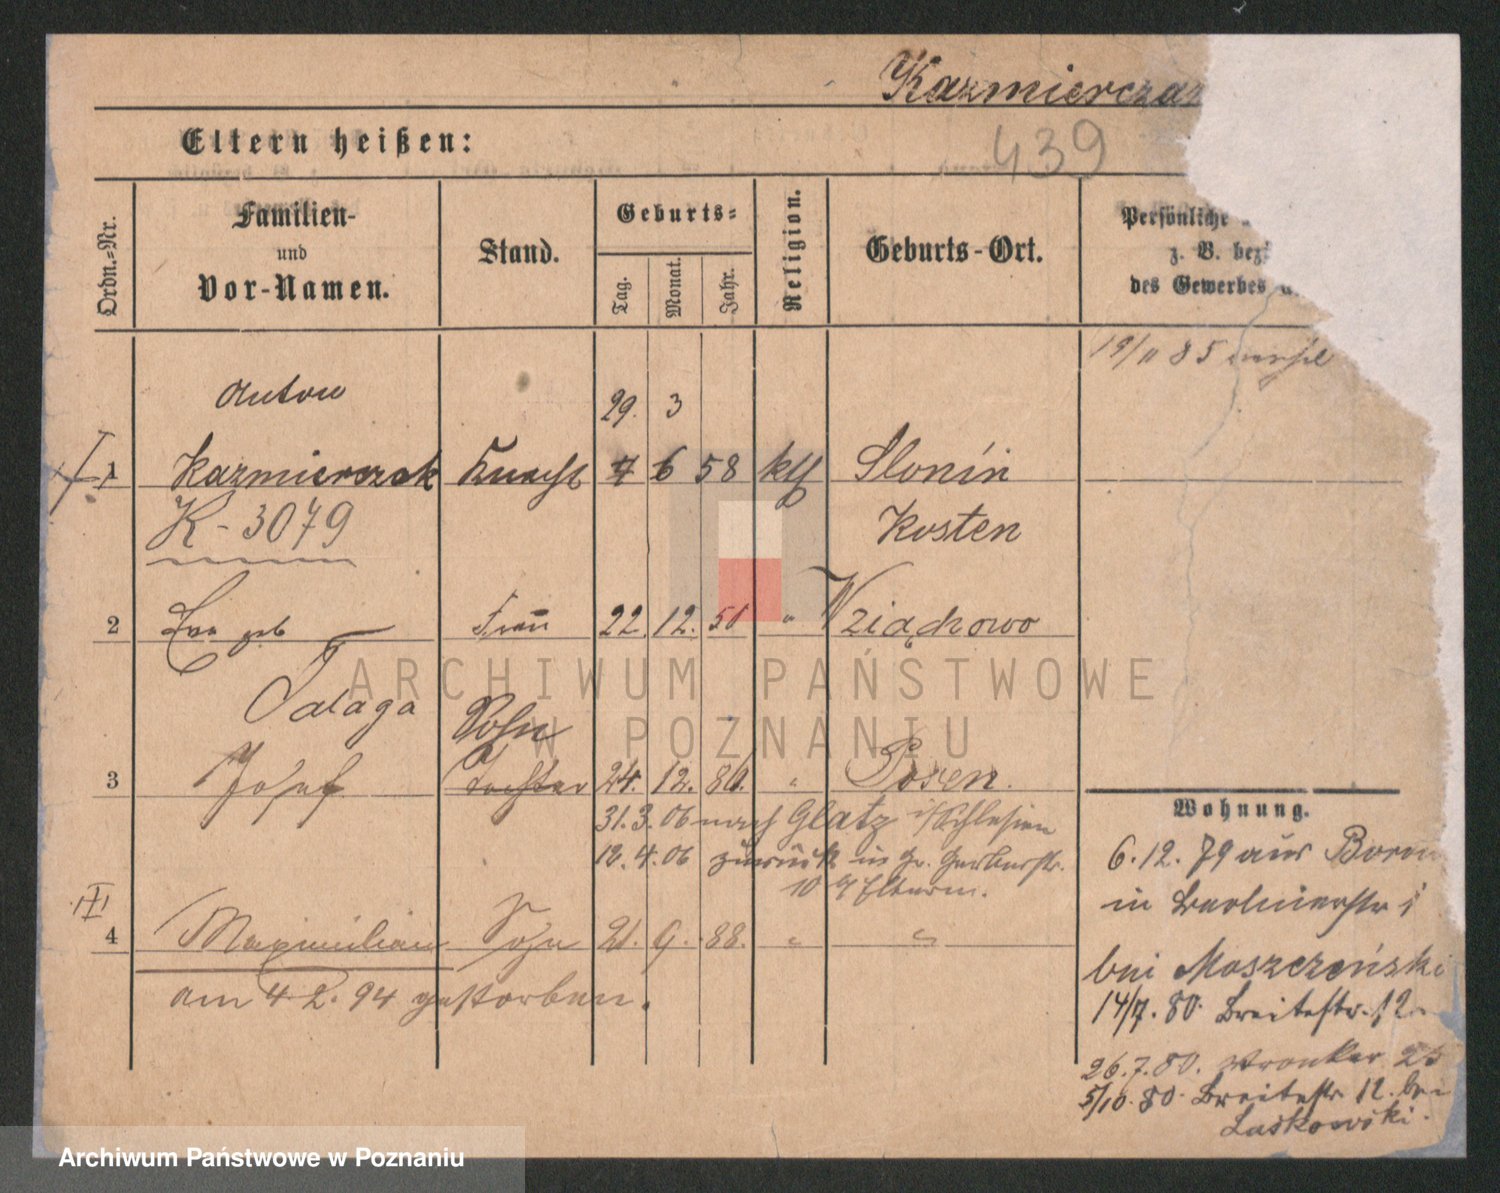 Kazmierczak
439
Eltern heißen:
Ordn.-Nr.
Familien- und Vor-Namen.
Stand.
Geburts=
Tag.
Monat.
Jahr.
Religion.
Geburts-Ort.
Persönliche
z. B. bezi
des Gewerbes
19/11 85
Anton
29. 3
1 Kazmierczak Knecht 7 6 58 kth Slonin
K-3079
Kosten
2 Eva geb Frau 22 12. 50 " Wziąchowo
Talaga
Sohn
3 Josef Tochter 24. 12. 86. " Posen.
31. 3. 06 nach Glatz i/Schlesien
18. 4. 06 zurück in Gr. Gerberstr.
10 Eltern.
III
4 Maximilian Sohn 21. 9. 88. " "
am 4 2. 94 gestorben.
Wohnung.
6. 12. 79 aus
in Berlinerstr
bei Moszczeński
14/7. 80. Breitestr. 12.
26. 7. 80. Wronker 25
5/10. 80. Breitestr 12. bei
Laskowski.
ARCHIWUM PAŃSTWOWE
W POZNANIU
Archiwum Państwowe w Poznaniu